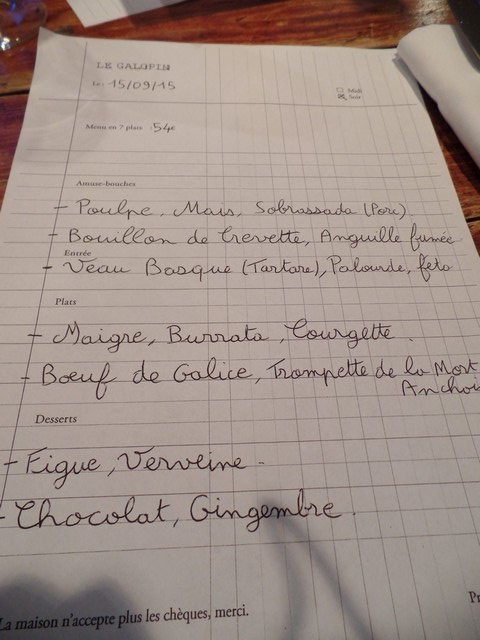 LE GALOPIN
Le: 15/09/15
Midi
Soir
Menu en 7 plats : 54€
Amuse-bouches
- Poulpe, Maïs, Sobrassada (Porc)
- Bouillon de Crevette, Anguille fumée
Entrée
- Veau Basque (Tartare), Palourde, feta
Plats
- Maigre, Burrata, Courgette.
- Bœuf de Galice, Trompette de la Mort
Anchois
Desserts
- Figue, Verveine -
- Chocolat, Gingembre.
La maison n'accepte plus les chèques, merci.